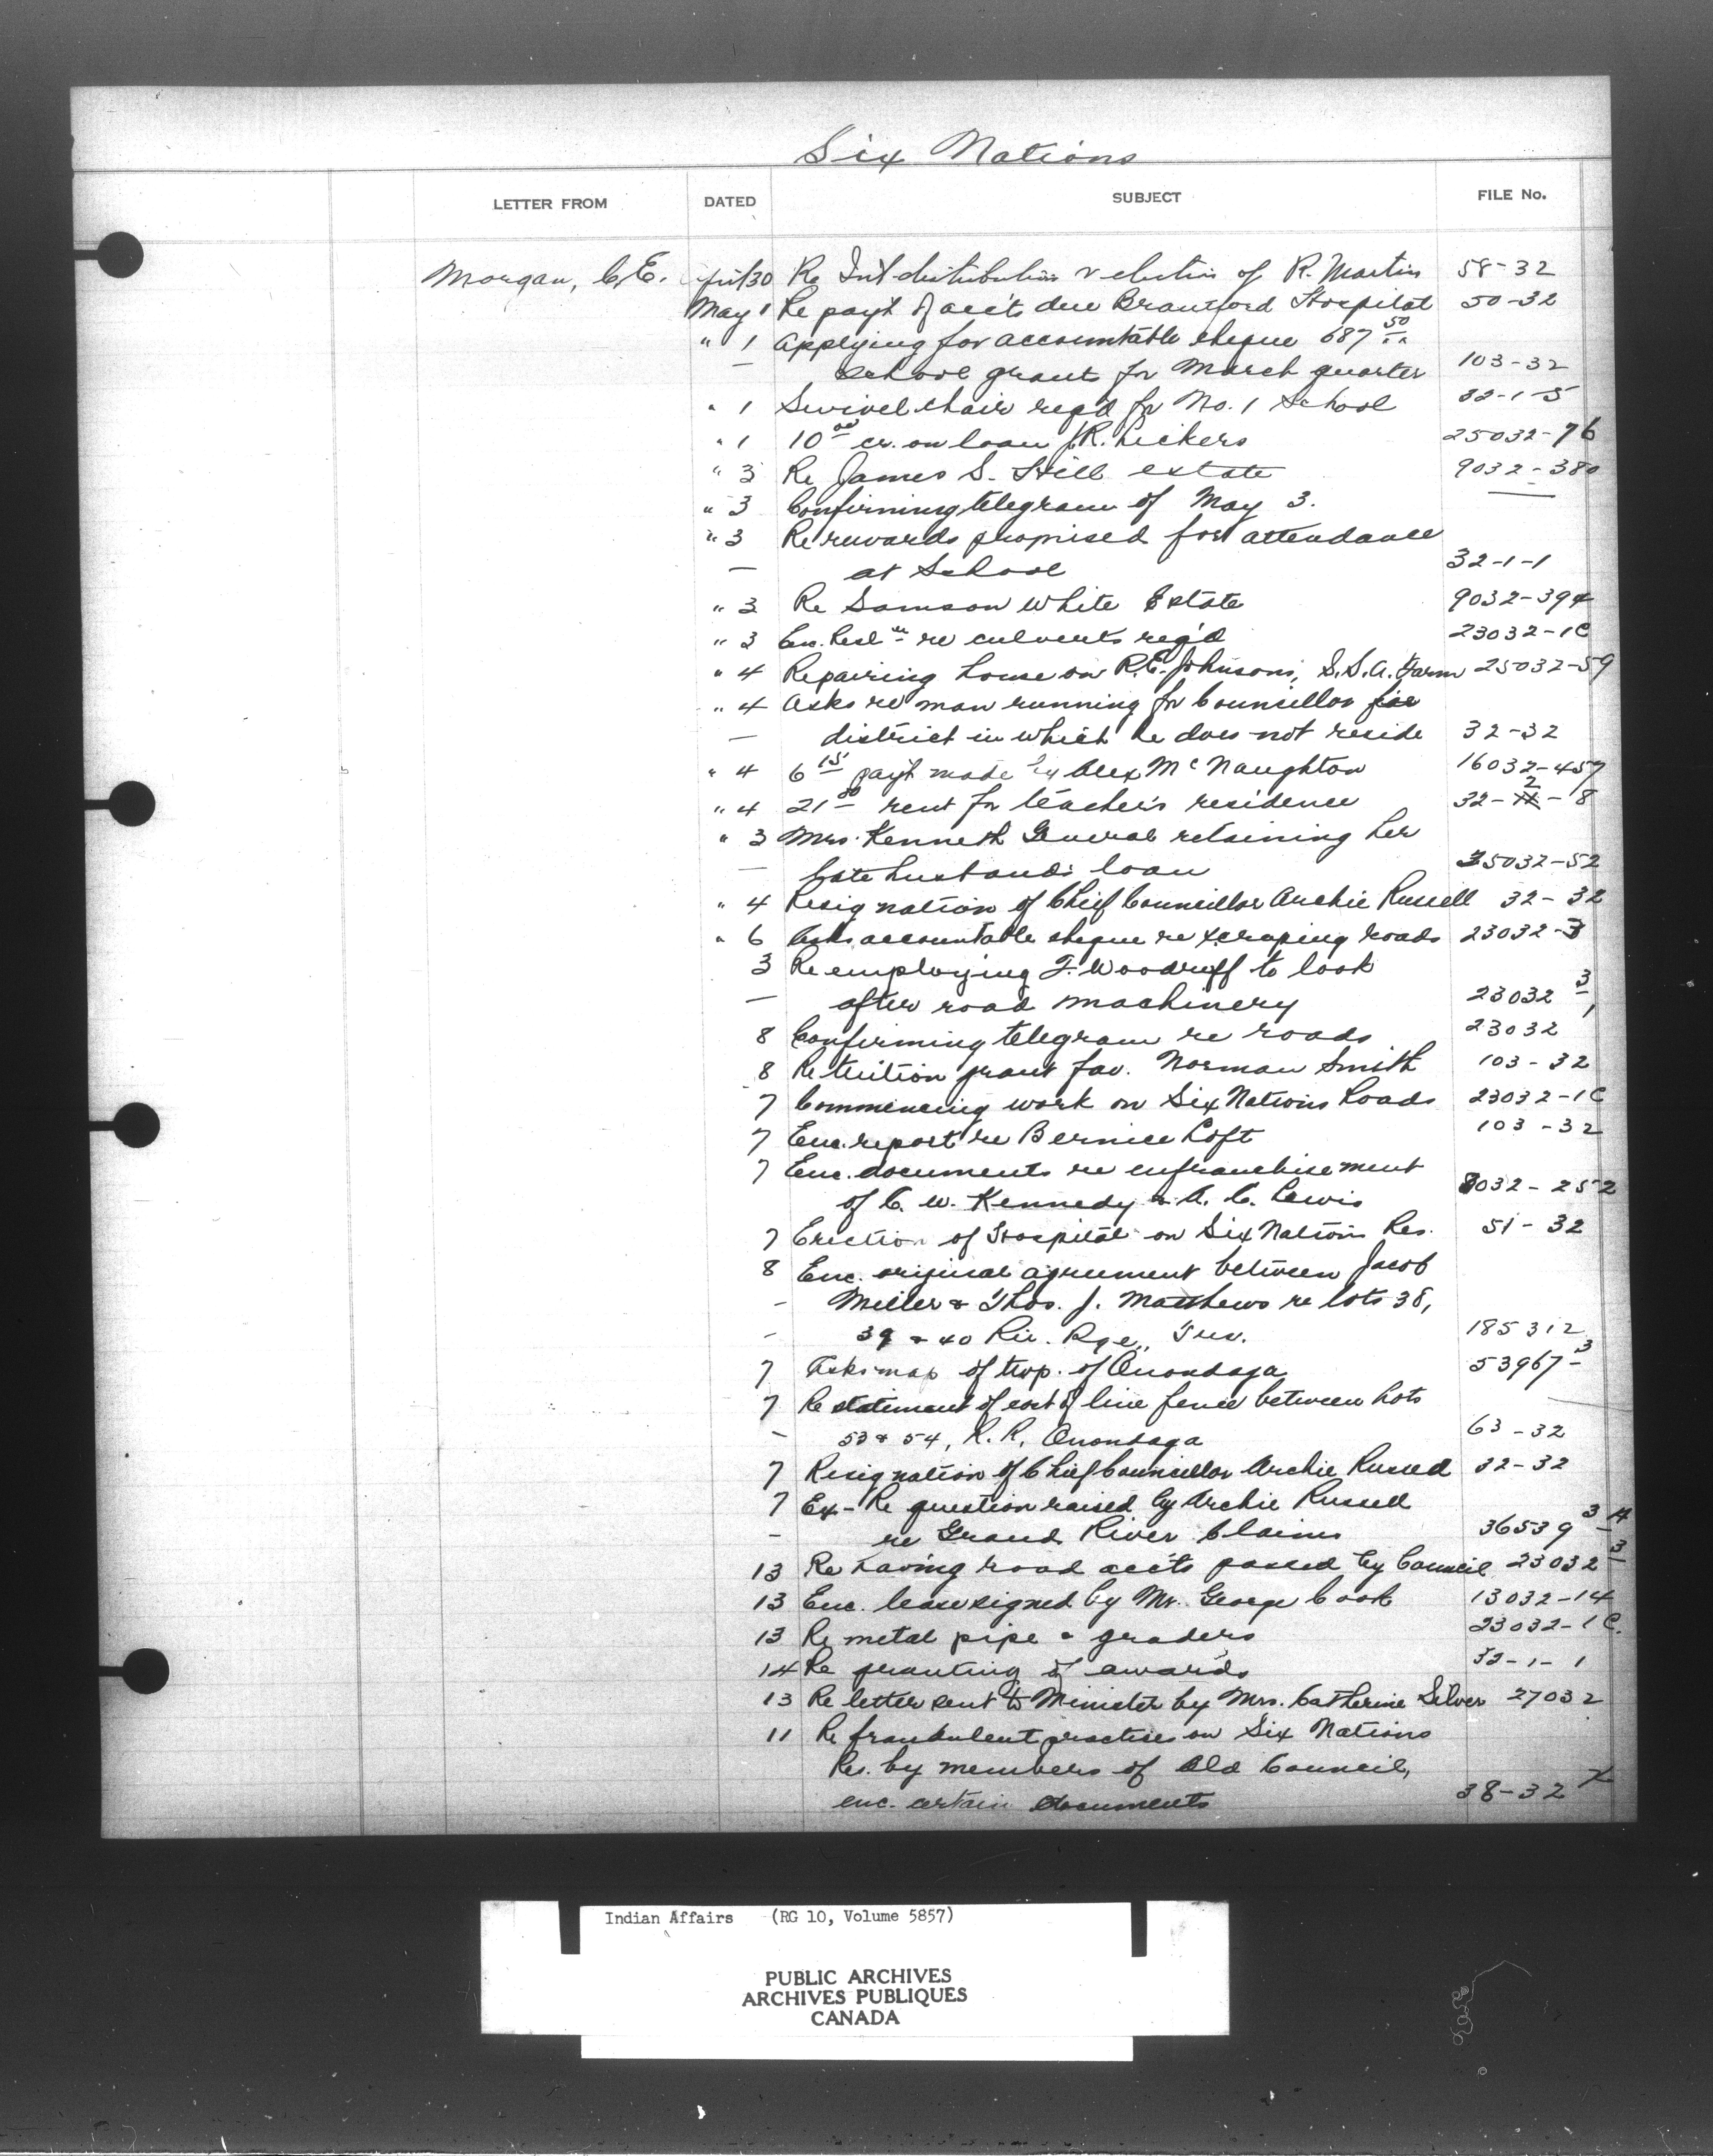 Six Nations
LETTER FROM DATED SUBJECT FILE No.
Morgan, C.E. April 30 Re Int distribution & election of R. Martin 58-32
May 1 Re payt of acct due Brantford Hospital 50-32
" 1 Applying for accountable cheque 687 50
— school grants for March quarter 103-32
" 1 Swivel chair reqd for No. 1 School 32-1-5
" 1 10 00 cr. on loan J.R. Lickers 25032-76
" 3 Re James S. Hill estate 9032-380
" 3 Confirming telegram of May 3. —
" 3 Re rewards promised for attendance
— at School 32-1-1
" 3 Re Samson White Estate 9032-394
" 3 Enc. Resln re culverts reqd 23032-1C
" 4 Repairing house on R.E. Johnsons, S.S.A. Farm 25032-59
" 4 Asks re man running for Councillor for
— district in which he does not reside 32-32
" 4 6 15 payt made by Alex McNaughton 16032-457
" 4 21 00 rent for teacher's residence 32-2-8
" 3 Mrs. Kenneth General retaining her
— late husband's loan 25032-52
" 4 Resignation of Chief Councillor Archie Russell 32-32
" 6 Asks accountable cheque re scraping roads 23032-3
3 Re employing F. Woodruff to look
— after road machinery 23032 3/1
8 Confirming telegram re roads 23032
8 Re tuition grant fav. Norman Smith 103-32
7 Commencing work on Six Nations Roads 23032-1C
7 Enc. report re Bernice Loft 103-32
7 Enc. documents re enfranchisement
of C. W. Kennedy & A. C. Lewis 8032-252
7 Erection of Hospital on Six Nations Res. 51-32
8 Enc. original agreement between Jacob
- Miller & Thos. J. Matthews re lots 38,
- 39 & 40 Riv. Rge., Tus. 185312
7 Asks map of twp. of Onondaga 53967-3
7 Re statement of cost of line fence between Lots
- 53 & 54, R.R. Onondaga 63-32
7 Resignation of Chief Councillor Archie Russell 32-32
7 Ex- Re question raised by Archie Russell
- re Grand River Claims 36539 3
13 Re having road accts passed by Council 23032 3
13 Enc. lease signed by Mr. George Cook 13032-14
13 Re metal pipe & graders 23032-1C.
14 Re granting of awards 32-1-1
13 Re letter sent to Minister by Mrs. Catherine Silver 27032
11 Re fraudulent practices on Six Nations
Res. by members of Old Council,
enc. certain documents 38-32
Indian Affairs (RG 10, Volume 5857)
PUBLIC ARCHIVES
ARCHIVES PUBLIQUES
CANADA